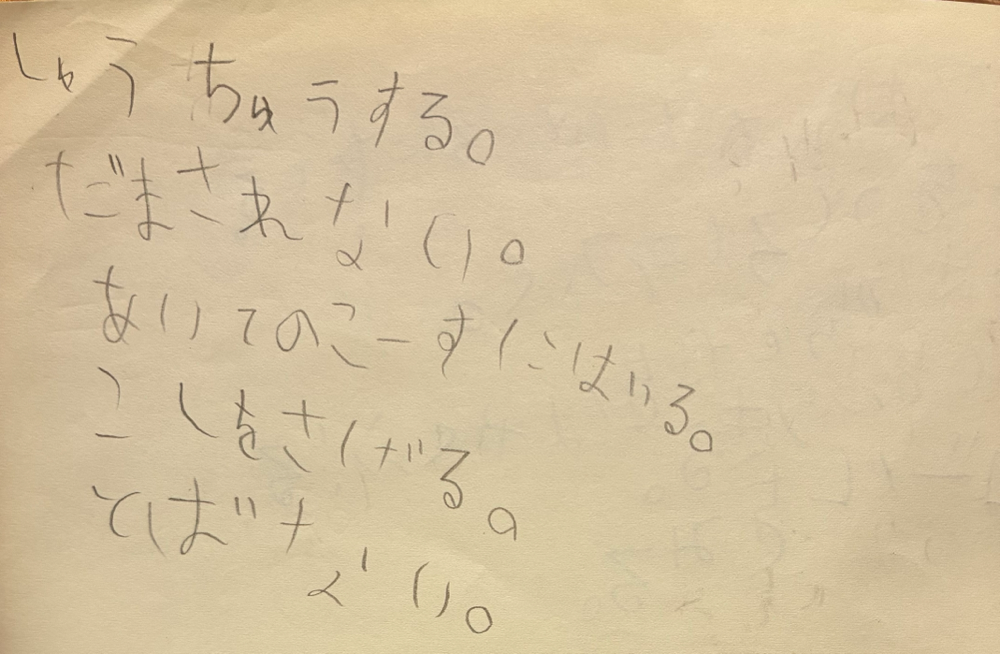 しゅうちゅうする。
だまされない。
あいてのこーすにはいる。
こしをさげる。
とばない。